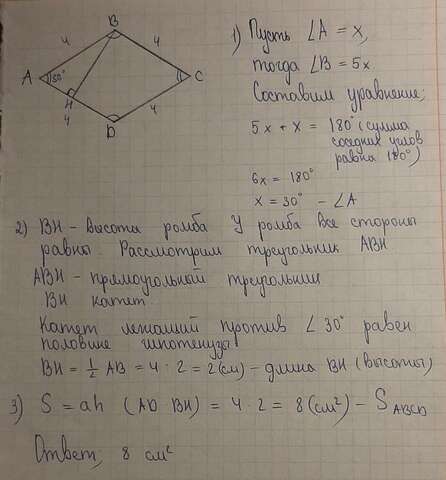 B
4
4
A
30°
C
H
4
4
D
1) Пусть ∠A = x,
тогда ∠B = 5x
Составим уравнение:
5x + x = 180° (сумма
соседних углов
равна 180°)
6x = 180°
x = 30° - ∠A
2) BH - высота ромба У ромба все стороны
равны. Рассмотрим треугольник ABH
ABH - прямоугольный треугольник
BH катет
Катет лежащий против ∠30° равен
половине гипотенузы
BH = 1/2 AB = 4 · 2 = 2 (см) - длина BH (высоты)
3) S = ah (AD BH) = 4 · 2 = 8 (см²) - S ABCD
Ответ, 8 см²